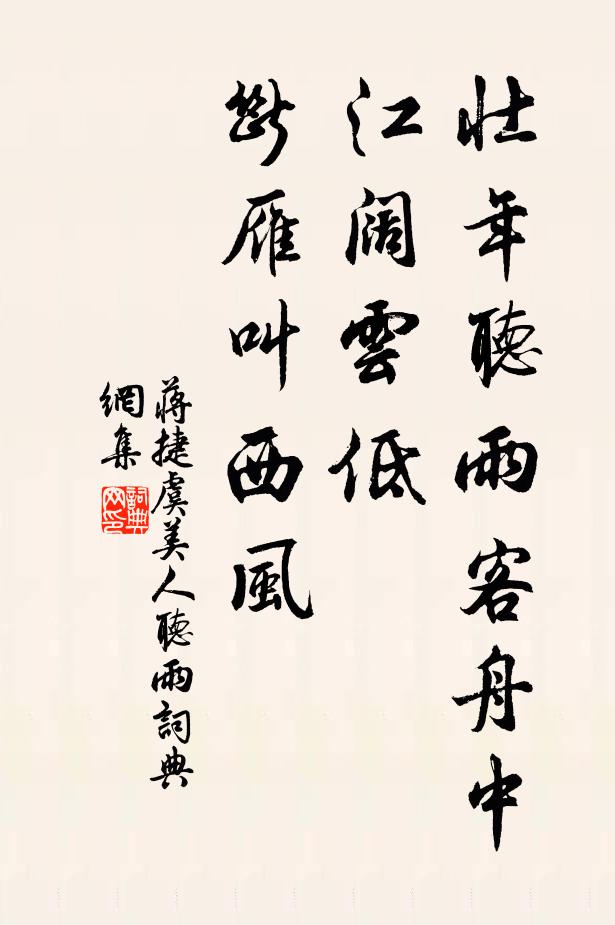 壮年聽雨客舟中
江闊雲低
斷雁叫西風
蔣捷虞美人聽雨詞典
網集
詞典网印